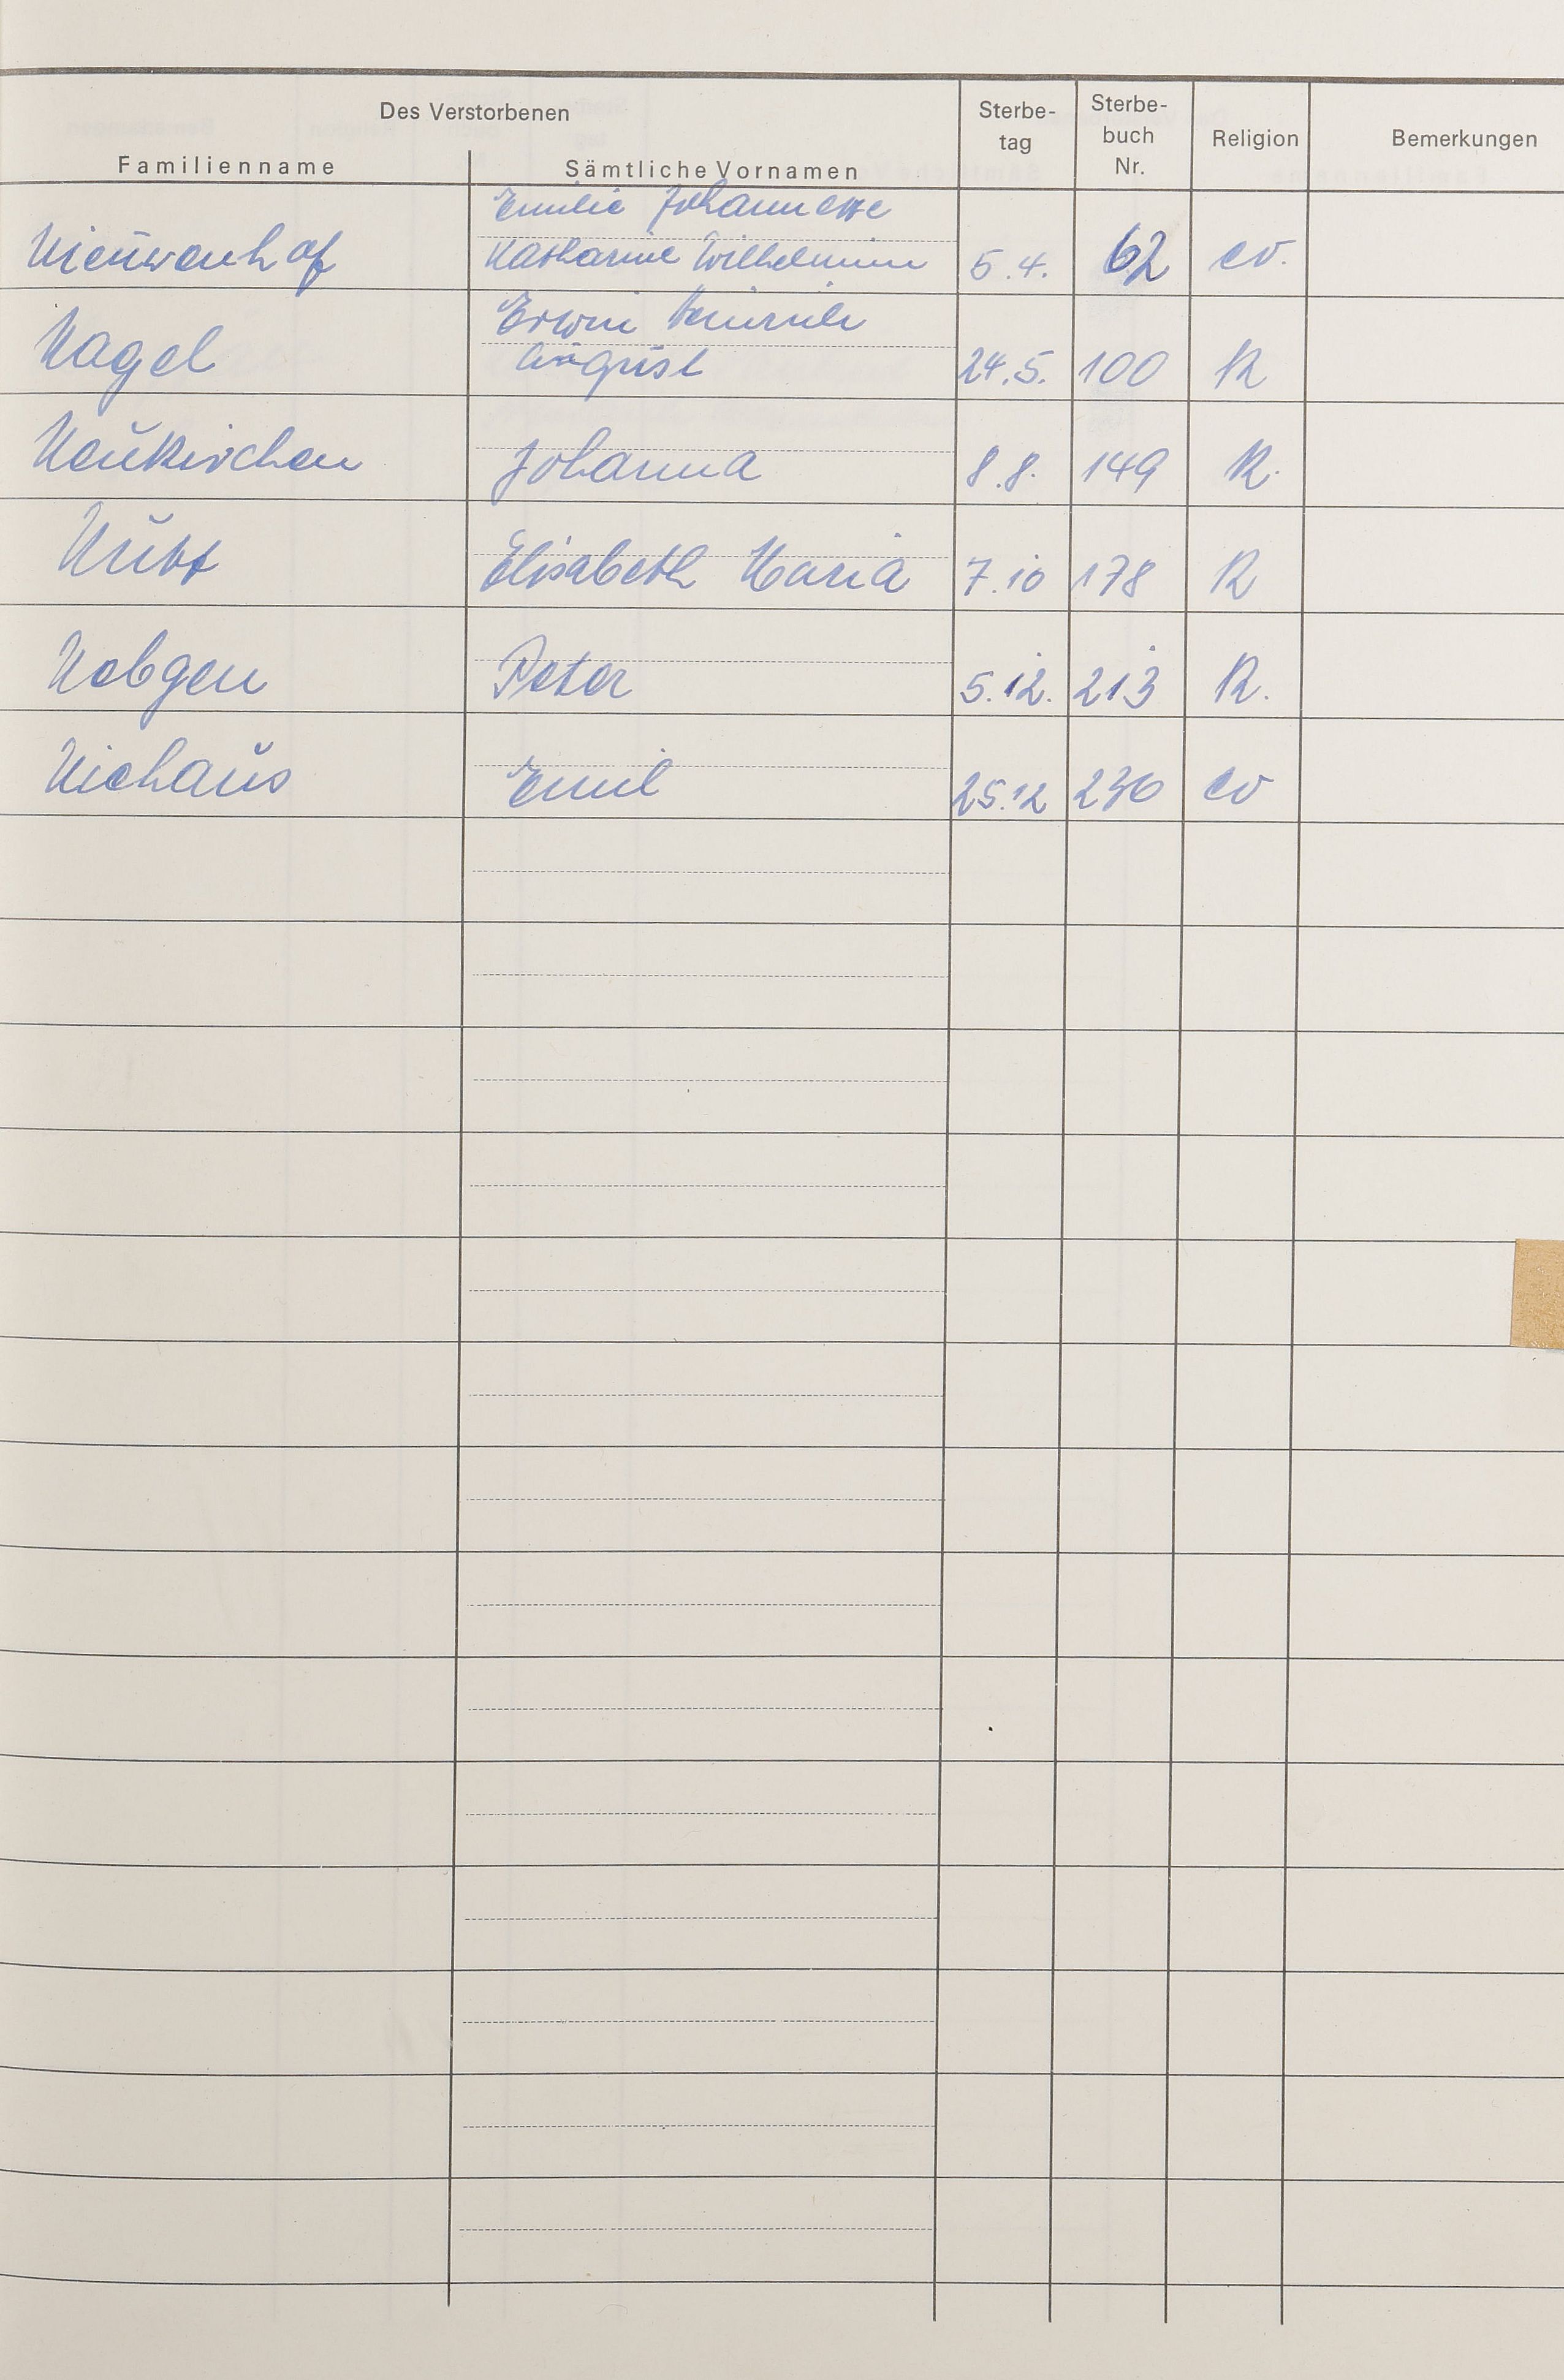 Des Verstorbenen
Familienname Sämtliche Vornamen Sterbe-
tag Sterbe-
buch
Nr. Religion Bemerkungen
Emilie Johannette
Nieuwenhof Katharine Wilhelmine 5.4. 62 ev.
Erwin Heinrich
Nagel August 24.5. 100 R
Neukirchen Johanna 8.8. 149 R.
Elisabeth Maria 7.10 178 R
Nebgen Peter 5.12. 213 R.
Niehaus Emil 25.12 230 ev